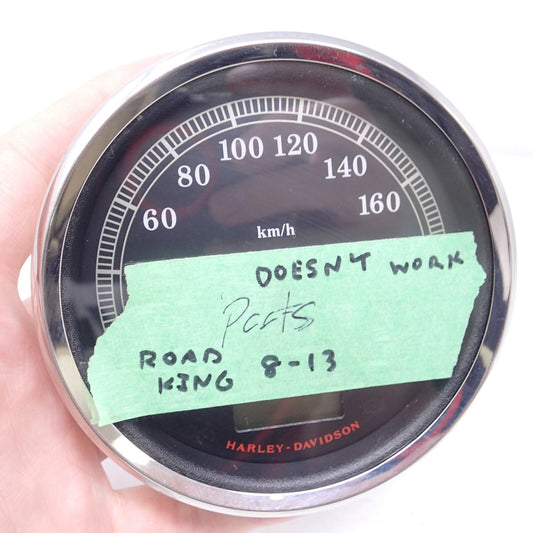 100 120
80 140
60 160
km/h
DOESN'T WORK
Parts
ROAD
KING 8-13
HARLEY-DAVIDSON